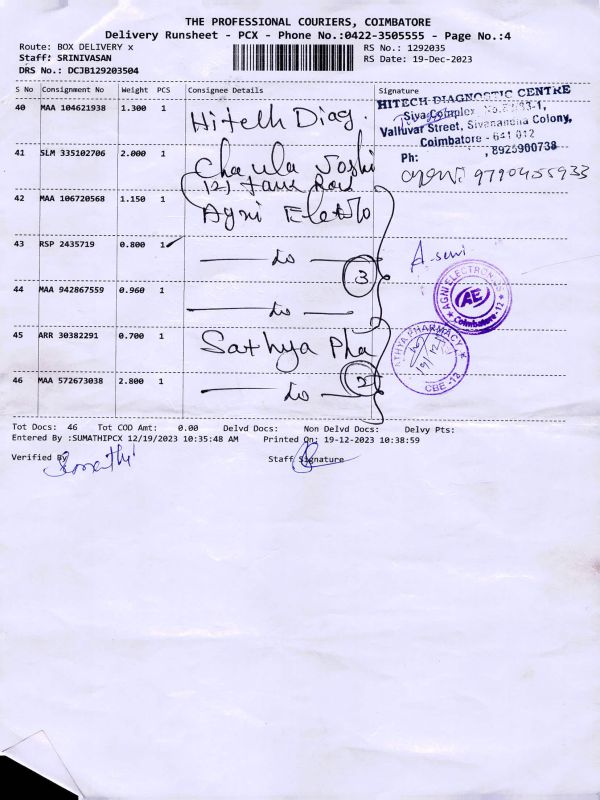 THE PROFESSIONAL COURIERS, COIMBATORE
Delivery Runsheet - PCX - Phone No.:0422-3505555 - Page No.:4
Route: BOX DELIVERY x
RS No.: 1292035
Staff: SRINIVASAN
RS Date: 19-Dec-2023
DRS No.: DCJB129203504
S No Consignment No Weight PCS Consignee Details Signature
40 MAA 104621938 1.300 1 Hitech Diag.
HITECH DIAGNOSTIC CENTRE
Siva Complex
Valluvar Street, Sivanandha Colony,
Coimbatore - 641 012
Ph: , 8925900738
9790455933
41 SLM 335102706 2.000 1 Chaula Joshi
121
42 MAA 106720568 1.150 1 Agni Eletro
43 RSP 2435719 0.800 1 — do —
3
AGNI ELECTRONICS
AE
Coimbatore-12
44 MAA 942867559 0.960 1 — do —
45 ARR 30382291 0.700 1 Sathya Pha
SATHYA PHARMACY
CBE-12
46 MAA 572673038 2.800 1 — do —
2
Tot Docs: 46 Tot COD Amt: 0.00 Delvd Docs: Non Delvd Docs: Delvy Pts:
Entered By :SUMATHIPCX 12/19/2023 10:35:48 AM Printed On: 19-12-2023 10:38:59
Verified By Staff Signature
Sumathi